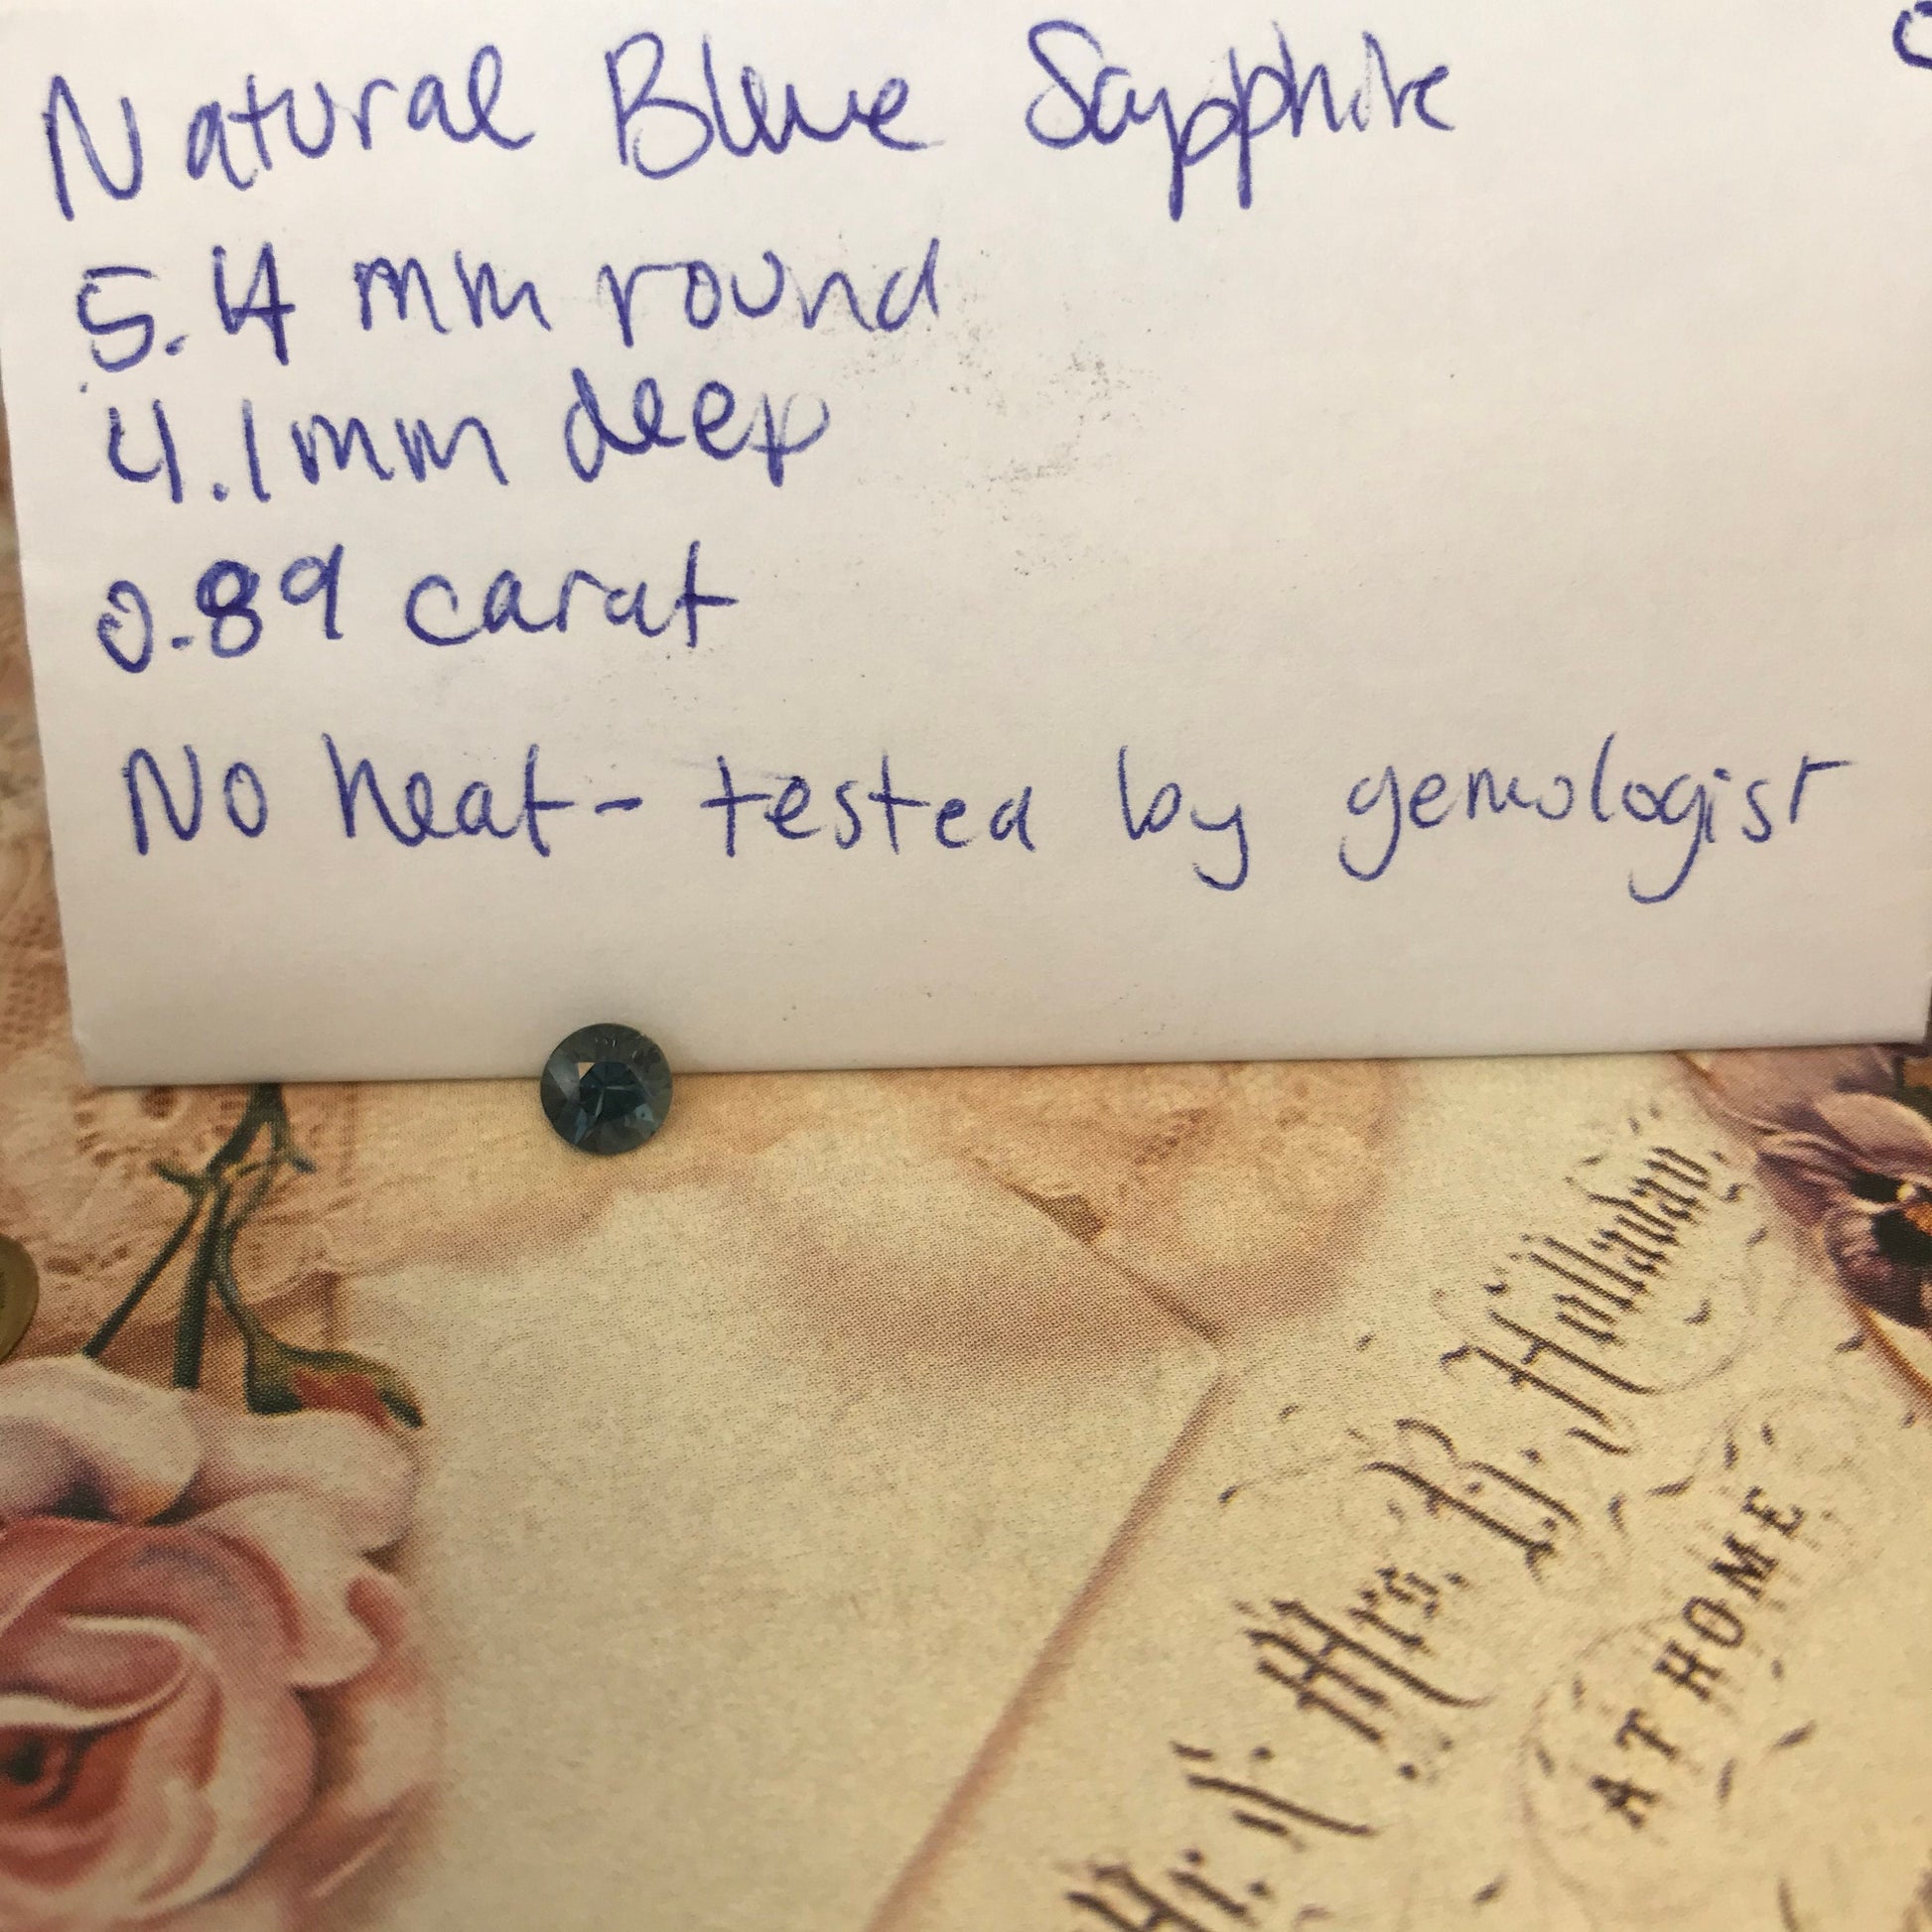 Natural Blue Sapphire
5.4 mm round
4.1mm deep
0.89 carat
No heat - tested by gemologist
Mr. & Mrs. B. Holladay,
AT HOME